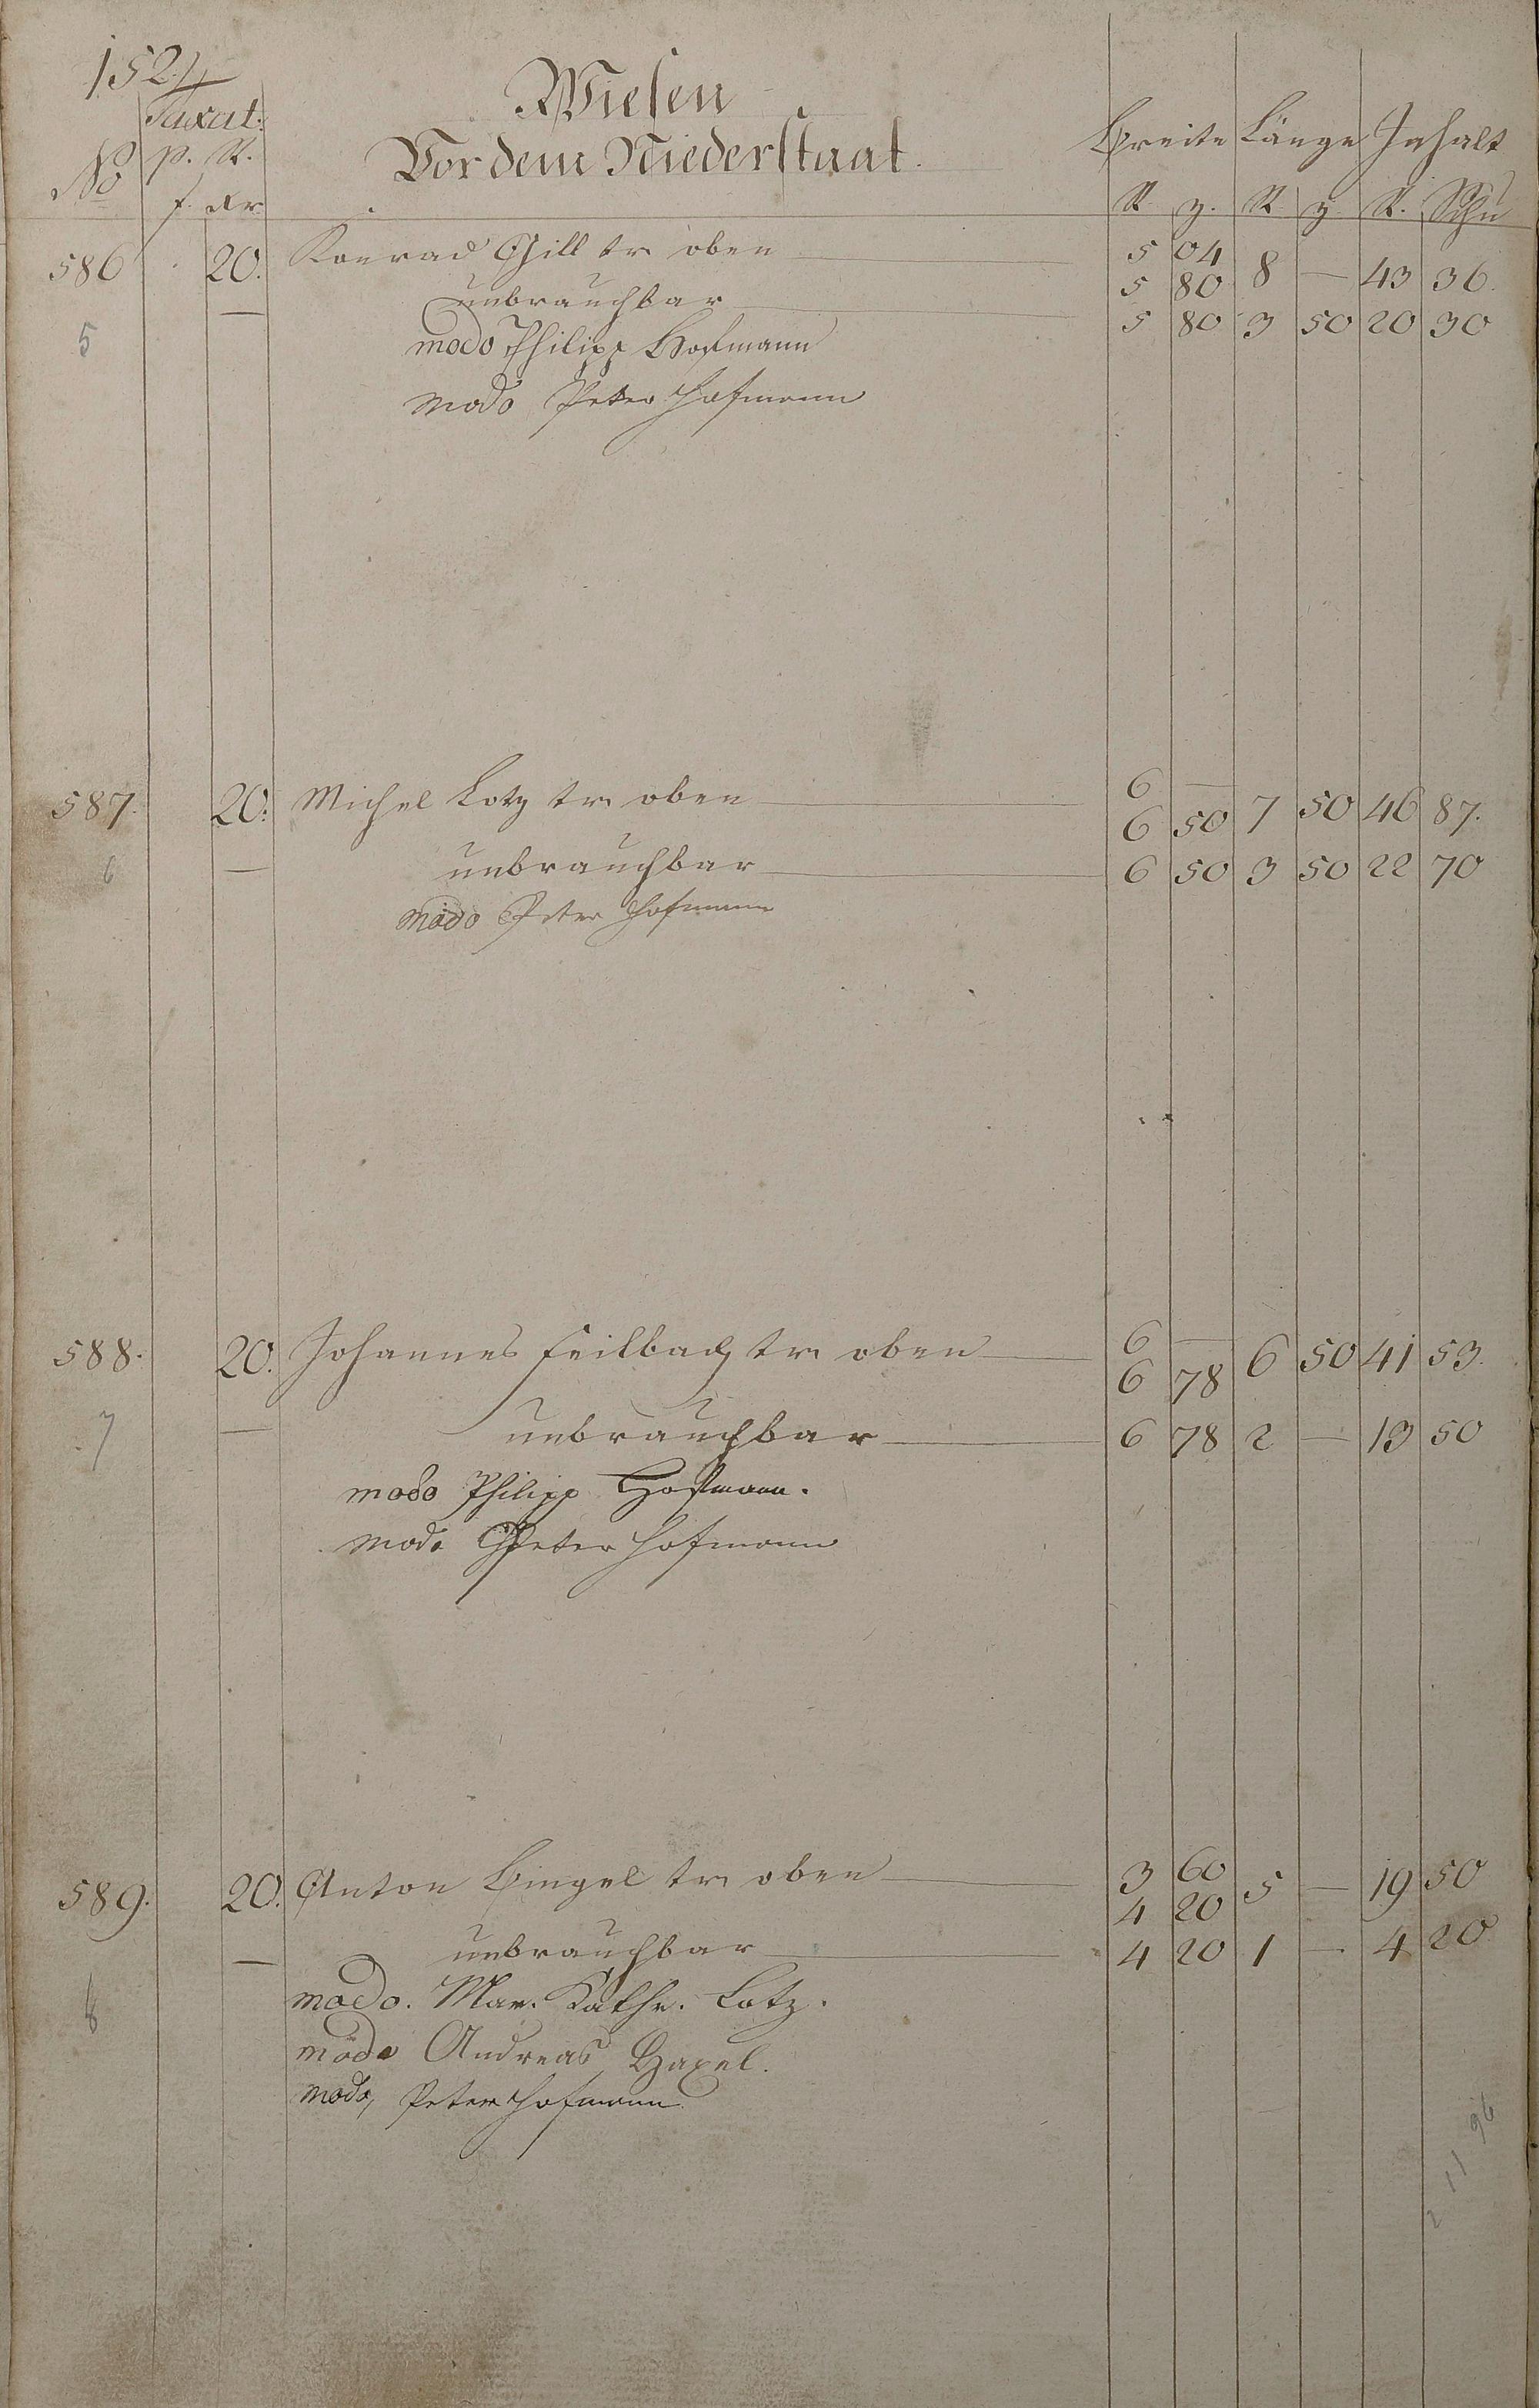 1524
Taxat:
Wiesen
Vor dem Niederstaat.
No p. R.
f. xr
Breite Länge Inhalt
R. z. R z R. Schu
586 20. Konrad Gill tr oben 5 04
5 80 8 — 43 36.
— unbrauchbar 5 80 3 50 20 30
5
modo Philipp Hofmann
modo Peter Hofmann
587. 20. Michel Lotz tr oben 6 —
6 50 7 50 46 87.
6 — unbrauchbar 6 50 3 50 22 70
modo Peter Hofmann
588. 20. Johannes Feilbach tr oben 6 —
6 78 6 50 41 53.
7 — unbrauchbar 6 78 2 — 13 50
modo Philipp Hofmann.
modo Peter Hofmann
589. 20. Anton Bingel tr oben 3 60
4 20 5 — 19 50
— unbrauchbar 4 20 1 — 4 20
8
modo. Mar. Kathr. Lotz.
modo Andreas Haxel.
modo, Peter Hofmann
2 11 96